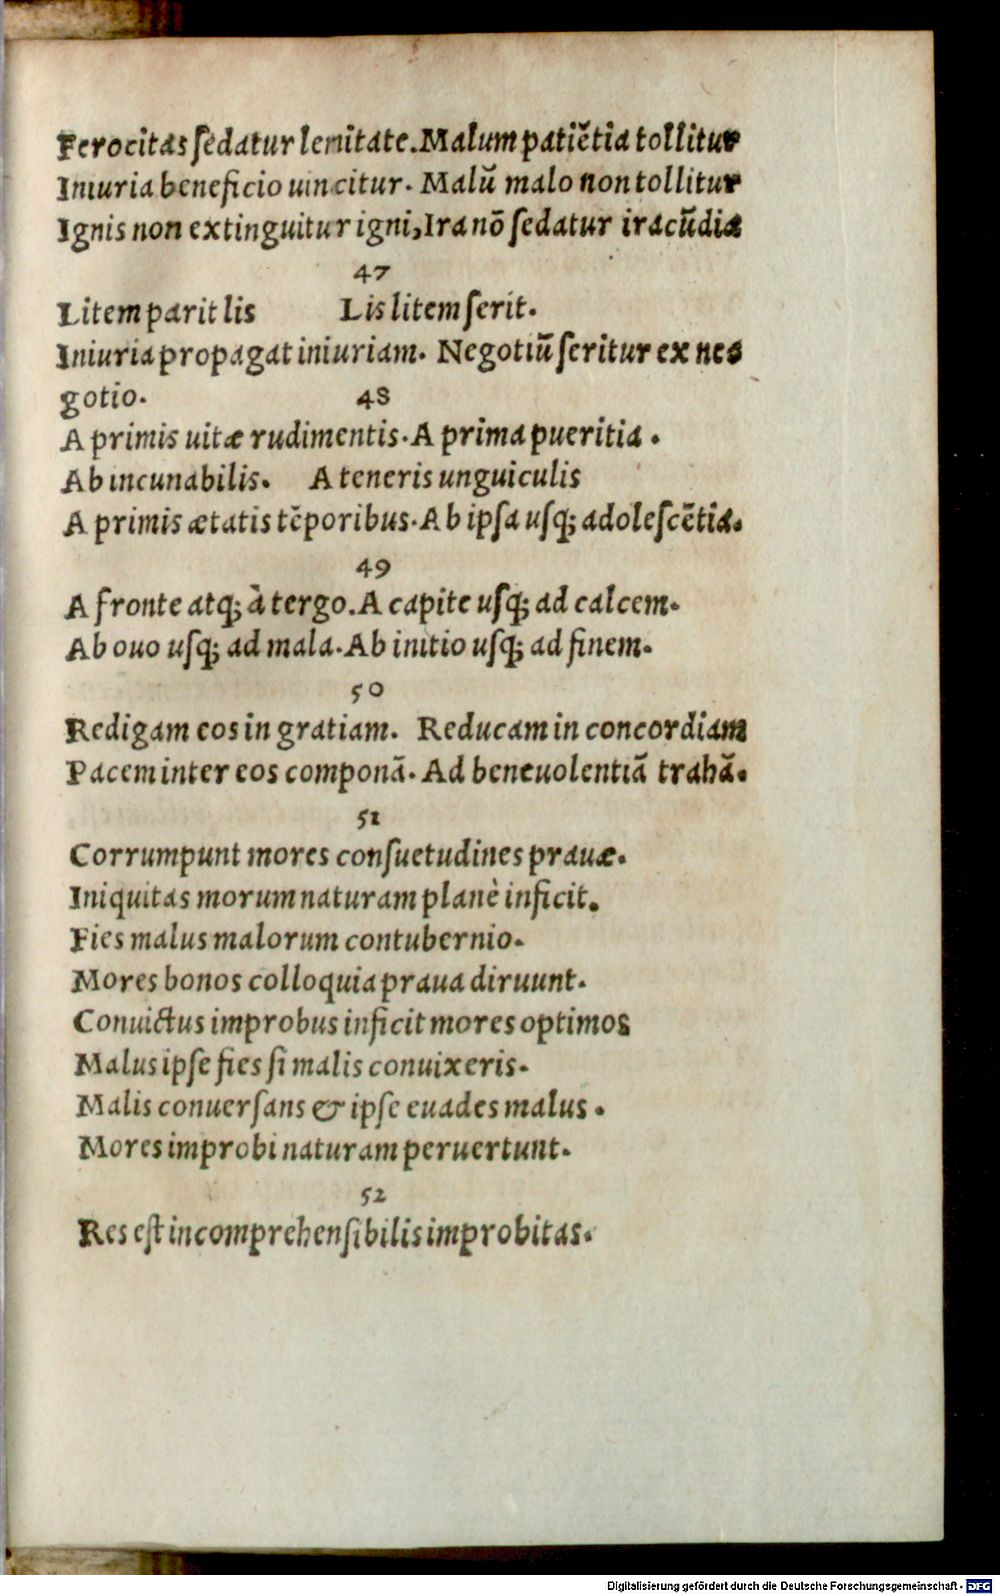 Ferocitas ſedatur lenitate. Malum patiẽtia tollitur
Iniuria beneficio uincitur. Malũ malo non tollitur
Ignis non extinguitur igni, Ira nõ ſedatur iracũdia
47
Litem parit lis Lis litem ſerit.
Iniuria propagat iniuriam. Negotiũ ſeritur ex ne⸗
gotio. 48
A primis uitæ rudimentis. A prima pueritia.
Ab incunabilis. A teneris unguiculis
A primis ætatis tẽporibus. Ab ipſa uſq; adoleſcẽtia.
49
A fronte atq; à tergo. A capite uſq; ad calcem.
Ab ouo uſq; ad mala. Ab initio uſq; ad finem.
50
Redigam eos in gratiam. Reducam in concordiam
Pacem inter eos componã. Ad beneuolentiã trahã.
51
Corrumpunt mores conſuetudines prauæ.
Iniquitas morum naturam planè inficit.
Fies malus malorum contubernio.
Mores bonos colloquia praua diruunt.
Conuictus improbus inficit mores optimos
Malus ipſe fies ſi malis conuixeris.
Malis conuerſans & ipſe euades malus.
Mores improbi naturam peruertunt.
52
Res eſt incomprehenſibilis improbitas.
Digitalisierung gefördert durch die Deutsche Forschungsgemeinschaft - DFG